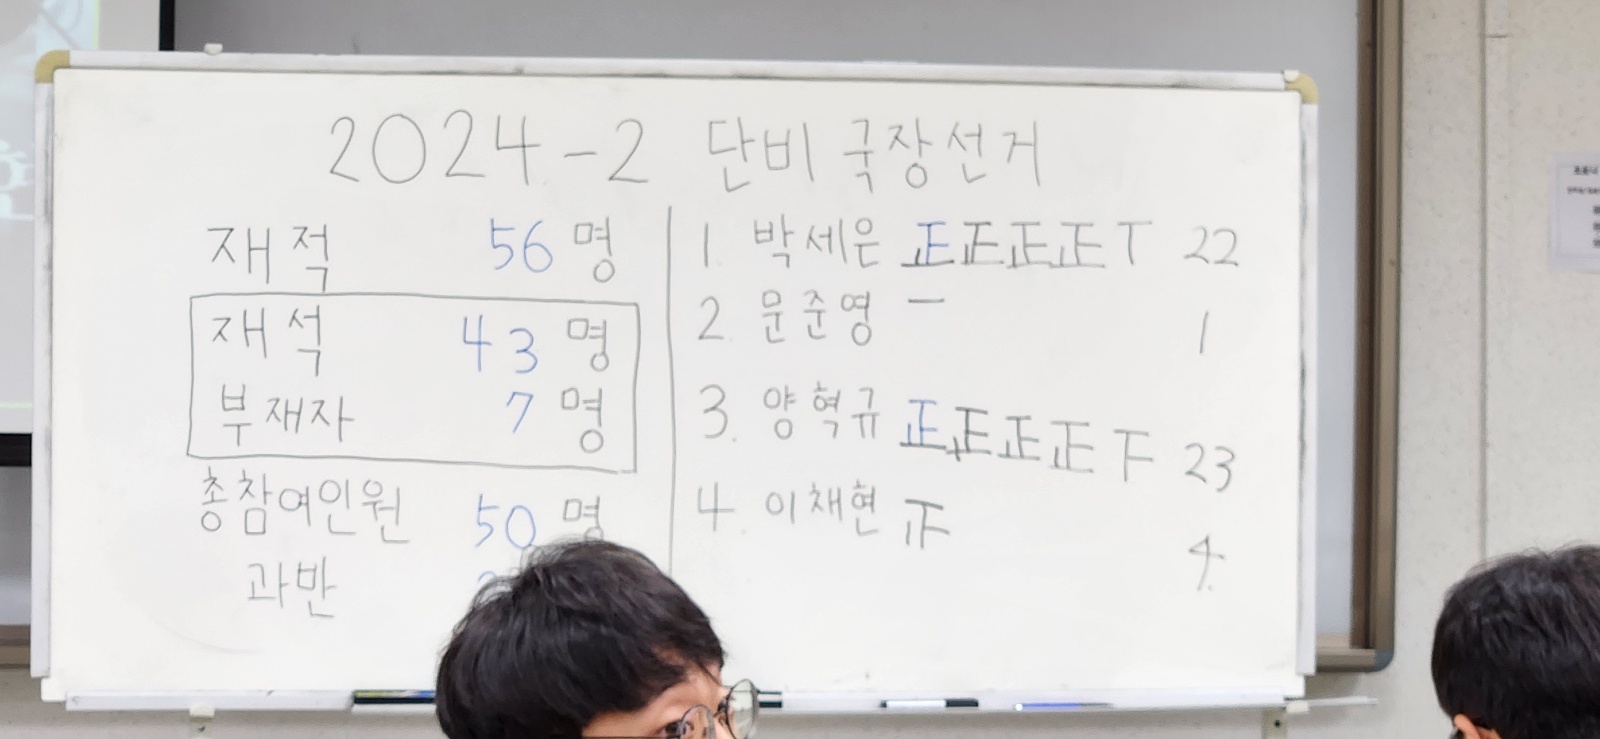 2024-2 단비 국장선거
재적 56명
재석 43명
부재자 7명
총참여인원 50명
과반
1. 박세은 正正正正丅 22
2. 문준영 一 1
3. 양혁규 正正正正下 23
4. 이채현 正 4